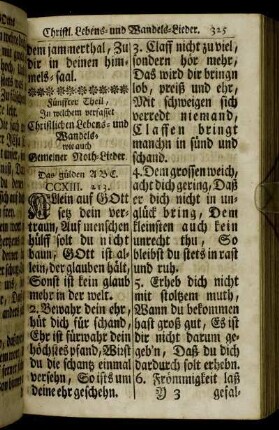 Christl. Lebens- und Wandels-Lieder. 325
dem jammerthal, Zu
dir in deinen him
mels-saal.
Fünffter Theil,
In welchem verfasset
Christlichen Lebens- und
Wandels-
wie auch
Gemeiner Noth-Lieder.
Das gülden A B C.
CCXIII. 213.
Allein auf GOtt
setz dein ver-
traun, Auf menschen
hülff solt du nicht
baun, GOtt ist al-
lein, der glauben hält,
Sonst ist kein glaub
mehr in der welt.
2. Bewahr dein ehr,
hüt dich für schand,
Ehr ist fürwahr dein
höchstes pfand, Wirst
du die schantz einmal
versehn, So ists um
deine ehr geschehn.
3. Claff nicht zu viel,
sondern hör mehr,
Das wird dir bringn
lob, preiß und ehr,
Mit schweigen sich
verredt niemand,
Claffen bringt
manchn in sünd und
schand.
4. Dem grossen weich,
acht dich gering, Daß
er dich nicht in un-
glück bring, Dem
kleinstem auch kein
unrecht thu, So
bleibst du stets in rast
und ruh.
5. Erheb dich nicht
mit stoltzem muth,
Wann du bekommen
hast groß gut, Es ist
dir nicht darum ge-
geb'n, Daß du dich
dardurch solt erhebn.
6. Frömmigkeit laß
Y 3 gefal-